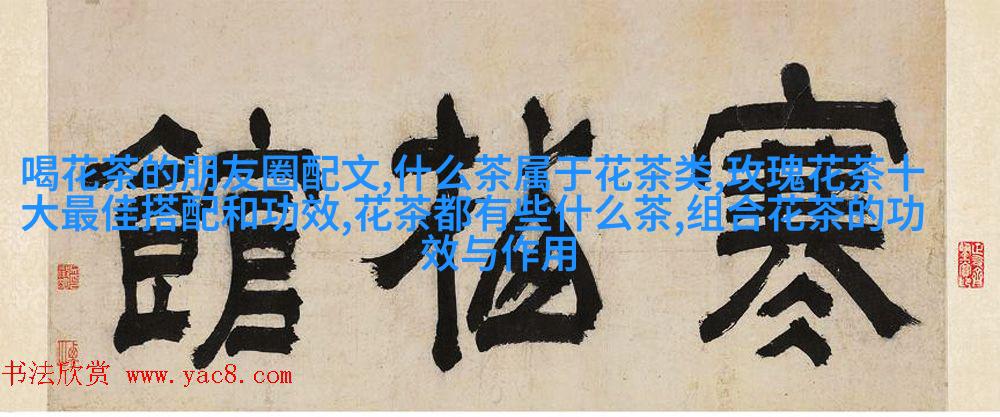 寒館
喝花茶的朋友圈配文,什么茶属于花茶类,玫瑰花茶十
大最佳搭配和功效,花茶都有些什么茶,组合花茶的功
效与作用
书法欣赏 www.yac8.com